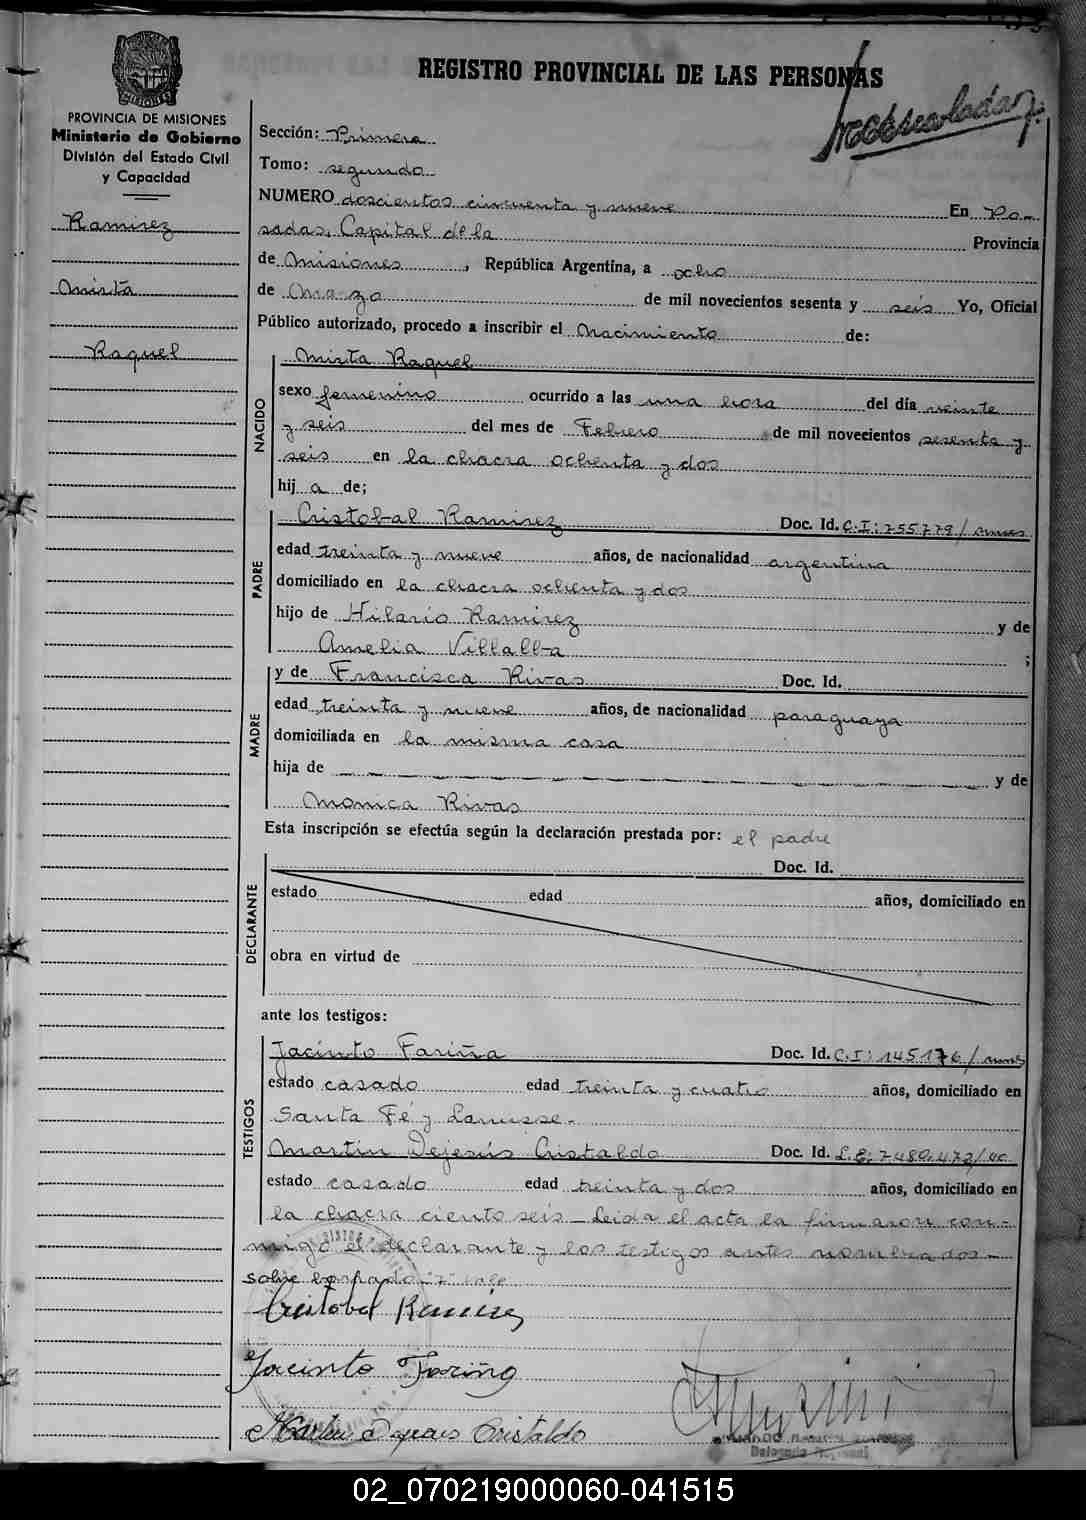 REGISTRO PROVINCIAL DE LAS PERSONAS
PROVINCIA DE MISIONES
Ministerio de Gobierno
División del Estado Civil
y Capacidad
Ramirez
Mirta
Raquel
Sección: Primera
Tomo: segundo
NUMERO doscientos cincuenta y nueve En Po-
sadas, Capital de la Provincia
de Misiones, República Argentina, a ocho
de Marzo de mil novecientos sesenta y seis Yo, Oficial
Público autorizado, procedo a inscribir el Nacimiento de:
NACIDO
Mirta Raquel
sexo femenino ocurrido a las una hora del día veinte
y seis del mes de Febrero de mil novecientos sesenta y
seis en la chacra ochenta y dos
hij a de;
PADRE
Cristobal Ramirez Doc. Id. C.I: 755779/
edad treinta y nueve años, de nacionalidad argentina
domiciliado en la chacra ochenta y dos
hijo de Hilario Ramirez y de
Amelia Villalba ;
MADRE
y de Francisca Rivas Doc. Id.
edad treinta y nueve años, de nacionalidad paraguaya
domiciliada en la misma casa
hija de y de
Monica Rivas
Esta inscripción se efectúa según la declaración prestada por: el padre
DECLARANTE
Doc. Id.
estado edad años, domiciliado en
obra en virtud de
ante los testigos:
TESTIGOS
Jacinto Fariña Doc. Id. C.I: 145176/
estado casado edad treinta y cuatro años, domiciliado en
Santa Fé y Lanusse.
Martin Dejesús Cristaldo Doc. Id. L.E: 7480.472/
estado casado edad treinta y dos años, domiciliado en
la chacra ciento seis_Leida el acta la firmaron con-
migo el declarante y los testigos antes nombrados_
sobre borrado "7" vale
Cristobal Ramirez
Jacinto Fariña
Martin Dejesus Cristaldo
02_070219000060-041515